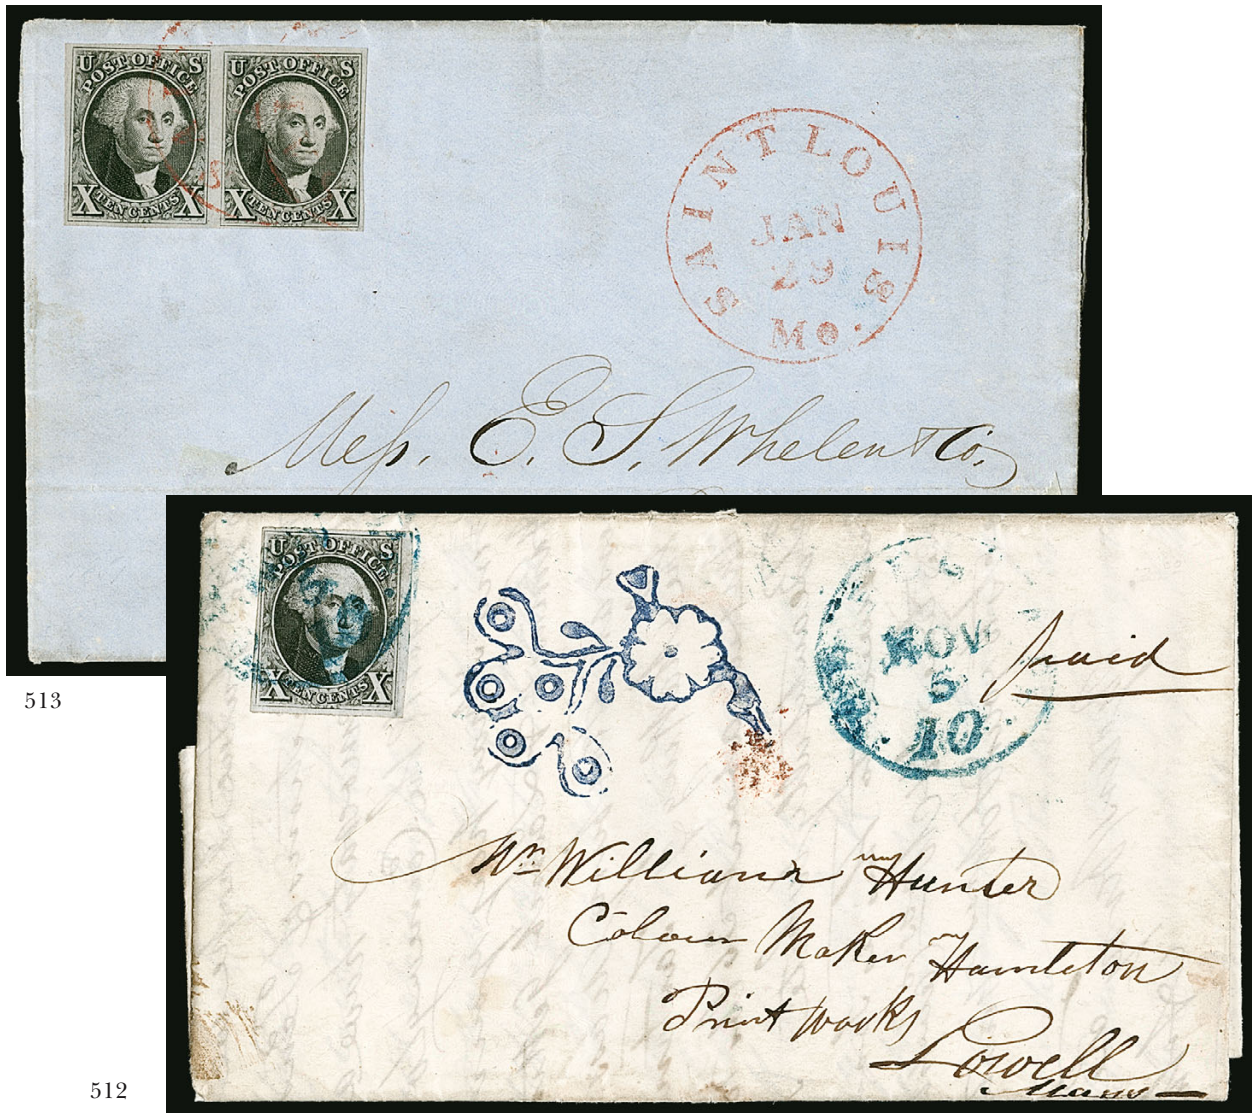 U S U S
POST OFFICE POST OFFICE
X TEN CENTS X X TEN CENTS X
SAINT LOUIS
JAN
29
Mo.
Mess. E. S. Whelen & Co.
513
U S
POST OFFICE
X TEN CENTS X
NOV
5
10
paid
Mr William Hunter
Colour Maker Hamleton
Print Works
Lowell
Mass
512